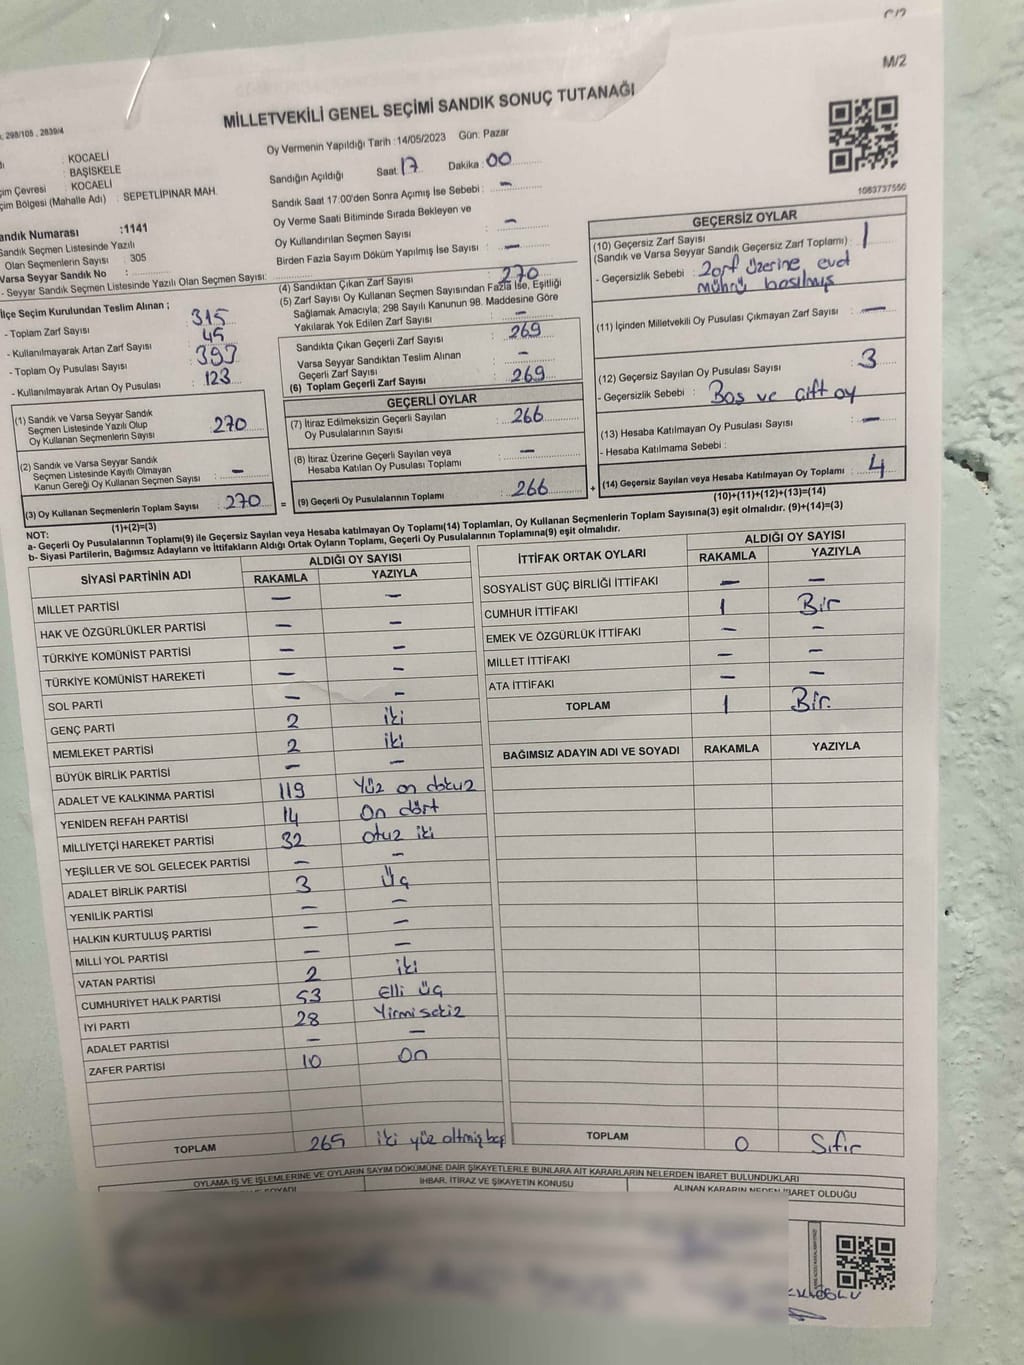 M/2
MİLLETVEKİLİ GENEL SEÇİMİ SANDIK SONUÇ TUTANAĞI
298/105 , 2839/4
: KOCAELİ
: BAŞİSKELE
çim Çevresi : KOCAELİ
çim Bölgesi (Mahalle Adı) : SEPETLİPINAR MAH.
andık Numarası :1141
Sandık Seçmen Listesinde Yazılı
Olan Seçmenlerin Sayısı : 305
Varsa Seyyar Sandık No :
- Seyyar Sandık Seçmen Listesinde Yazılı Olan Seçmen Sayısı:
Oy Vermenin Yapıldığı Tarih :14/05/2023 Gün: Pazar
Sandığın Açıldığı Saat 17 Dakika : 00
Sandık Saat 17:00'den Sonra Açımış İse Sebebi : -
Oy Verme Saati Bitiminde Sırada Bekleyen ve
Oy Kullandırılan Seçmen Sayısı : -
Birden Fazla Sayım Döküm Yapılmış İse Sayısı : -
1083737550
İlçe Seçim Kurulundan Teslim Alınan ;
- Toplam Zarf Sayısı : 315
- Kullanılmayarak Artan Zarf Sayısı : 45
- Toplam Oy Pusulası Sayısı : 393
- Kullanılmayarak Artan Oy Pusulası : 123
(1) Sandık ve Varsa Seyyar Sandık
Seçmen Listesinde Yazılı Olup
Oy Kullanan Seçmenlerin Sayısı : 270
(2) Sandık ve Varsa Seyyar Sandık
Seçmen Listesinde Kayıtlı Olmayan
Kanun Gereği Oy Kullanan Seçmen Sayısı : -
(3) Oy Kullanan Seçmenlerin Toplam Sayısı : 270
(1)+(2)=(3)
(4) Sandıktan Çıkan Zarf Sayısı : 270
(5) Zarf Sayısı Oy Kullanan Seçmen Sayısından Fazla İse, Eşitliği
Sağlamak Amacıyla, 298 Sayılı Kanunun 98. Maddesine Göre
Yakılarak Yok Edilen Zarf Sayısı : -
Sandıkta Çıkan Geçerli Zarf Sayısı : 269
Varsa Seyyar Sandıktan Teslim Alınan
Geçerli Zarf Sayısı : -
(6) Toplam Geçerli Zarf Sayısı : 269
GEÇERLİ OYLAR
(7) İtiraz Edilmeksizin Geçerli Sayılan
Oy Pusulalarının Sayısı : 266
(8) İtiraz Üzerine Geçerli Sayılan veya
Hesaba Katılan Oy Pusulası Toplamı : -
= (9) Geçerli Oy Pusulalarının Toplamı : 266
GEÇERSİZ OYLAR
(10) Geçersiz Zarf Sayısı
(Sandık ve Varsa Seyyar Sandık Geçersiz Zarf Toplamı) : 1
- Geçersizlik Sebebi : Zarf üzerine evet
mührü basılmış
(11) İçinden Milletvekili Oy Pusulası Çıkmayan Zarf Sayısı : -
(12) Geçersiz Sayılan Oy Pusulası Sayısı : 3
- Geçersizlik Sebebi : Boş ve çift oy
(13) Hesaba Katılmayan Oy Pusulası Sayısı : -
- Hesaba Katılmama Sebebi :
+ (14) Geçersiz Sayılan veya Hesaba Katılmayan Oy Toplamı : 4
(10)+(11)+(12)+(13)=(14)
NOT:
a- Geçerli Oy Pusulalarının Toplamı(9) ile Geçersiz Sayılan veya Hesaba katılmayan Oy Toplamı(14) Toplamları, Oy Kullanan Seçmenlerin Toplam Sayısına(3) eşit olmalıdır. (9)+(14)=(3)
b- Siyasi Partilerin, Bağımsız Adayların ve İttifakların Aldığı Ortak Oyların Toplamı, Geçerli Oy Pusulalarının Toplamına(9) eşit olmalıdır.
SİYASİ PARTİNİN ADI
ALDIĞI OY SAYISI
RAKAMLA YAZIYLA
MİLLET PARTİSİ - -
HAK VE ÖZGÜRLÜKLER PARTİSİ - -
TÜRKİYE KOMÜNİST PARTİSİ - -
TÜRKİYE KOMÜNİST HAREKETİ - -
SOL PARTİ - -
GENÇ PARTİ 2 iki
MEMLEKET PARTİSİ 2 iki
BÜYÜK BİRLİK PARTİSİ - -
ADALET VE KALKINMA PARTİSİ 119 Yüz on dokuz
YENİDEN REFAH PARTİSİ 14 On dört
MİLLİYETÇİ HAREKET PARTİSİ 32 otuz iki
YEŞİLLER VE SOL GELECEK PARTİSİ - -
ADALET BİRLİK PARTİSİ 3 Üç
YENİLİK PARTİSİ - -
HALKIN KURTULUŞ PARTİSİ - -
MİLLİ YOL PARTİSİ - -
VATAN PARTİSİ 2 iki
CUMHURİYET HALK PARTİSİ 53 Elli üç
İYİ PARTİ 28 Yirmi sekiz
ADALET PARTİSİ - -
ZAFER PARTİSİ 10 On
TOPLAM 265 iki yüz altmış beş
İTTİFAK ORTAK OYLARI
ALDIĞI OY SAYISI
RAKAMLA YAZIYLA
SOSYALİST GÜÇ BİRLİĞİ İTTİFAKI - -
CUMHUR İTTİFAKI 1 Bir
EMEK VE ÖZGÜRLÜK İTTİFAKI - -
MİLLET İTTİFAKI - -
ATA İTTİFAKI - -
TOPLAM 1 Bir
BAĞIMSIZ ADAYIN ADI VE SOYADI RAKAMLA YAZIYLA
TOPLAM 0 Sıfır
OYLAMA İŞ VE İŞLEMLERİNE VE OYLARIN SAYIM DÖKÜMÜNE DAİR ŞİKAYETLERLE BUNLARA AİT KARARLARIN NELERDEN İBARET BULUNDUKLARI
İHBAR, İTİRAZ VE ŞİKAYETİN KONUSU
ALINAN KARARIN NEDEN İBARET OLDUĞU